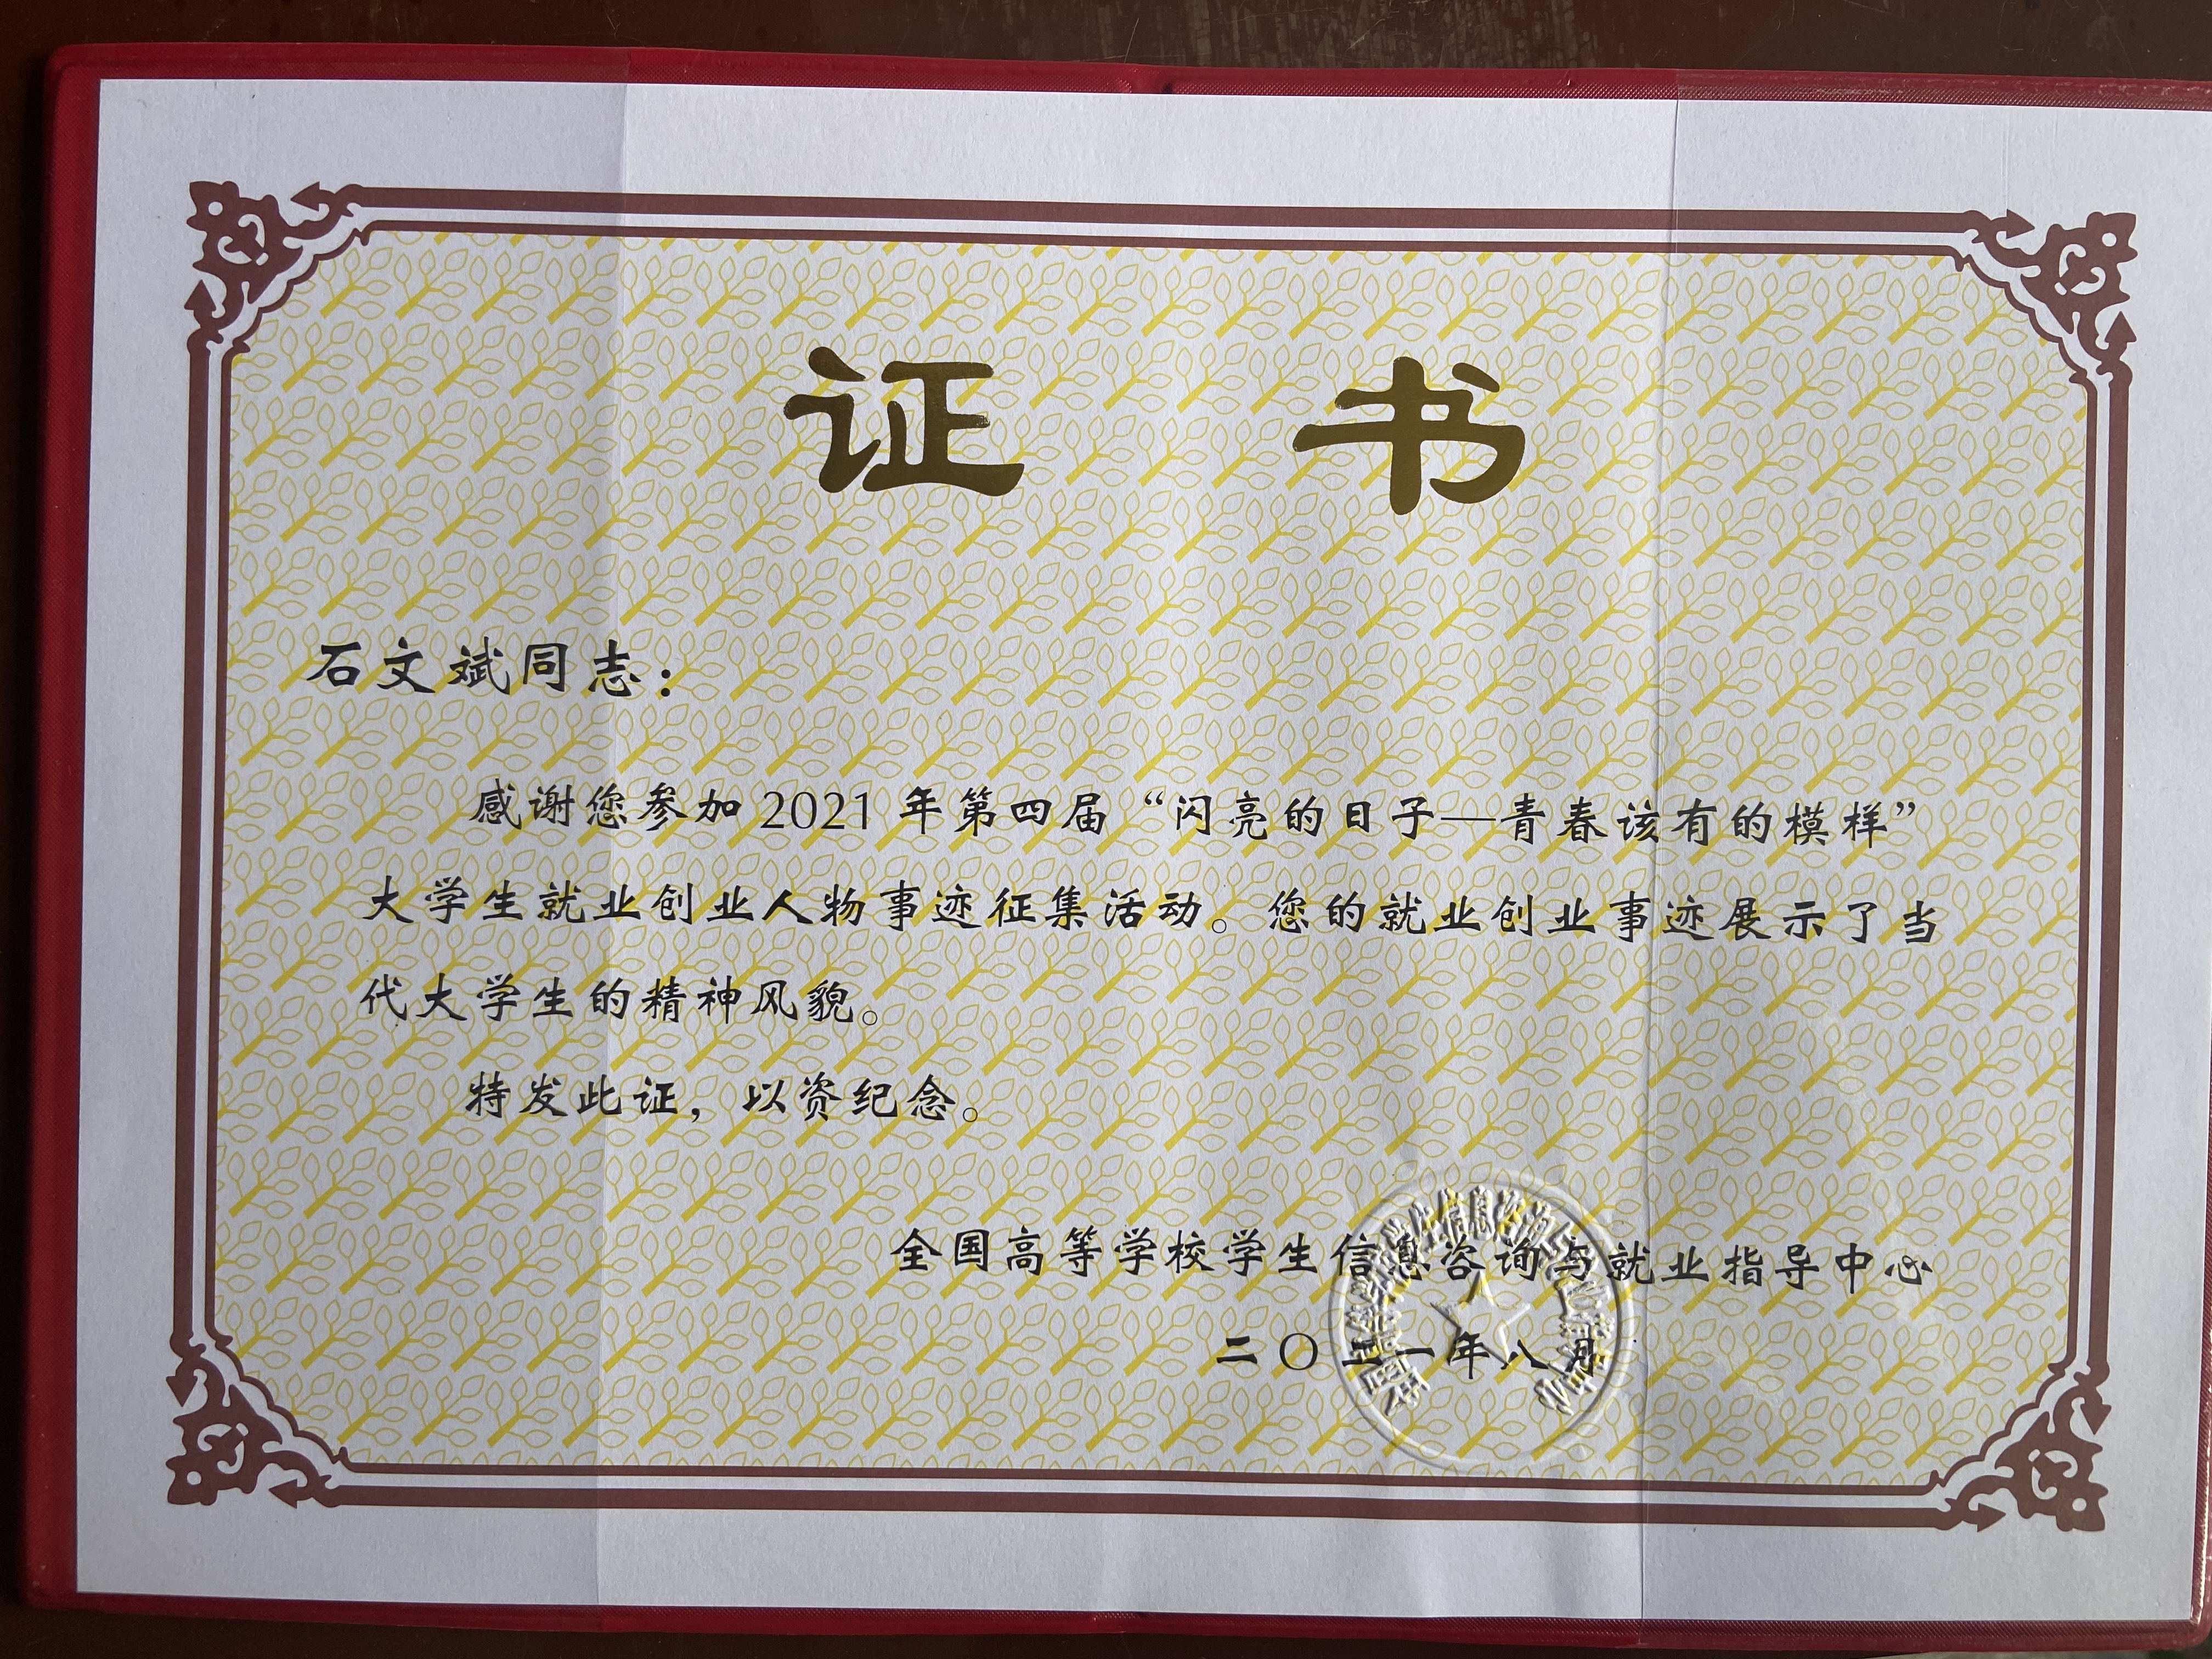 证书
石文斌同志：
感谢您参加 2021 年第四届“闪亮的日子—青春该有的模样”
大学生就业创业人物事迹征集活动。您的就业创业事迹展示了当
代大学生的精神风貌。
特发此证，以资纪念。
全国高等学校学生信息咨询与就业指导中心
二〇二一年八月